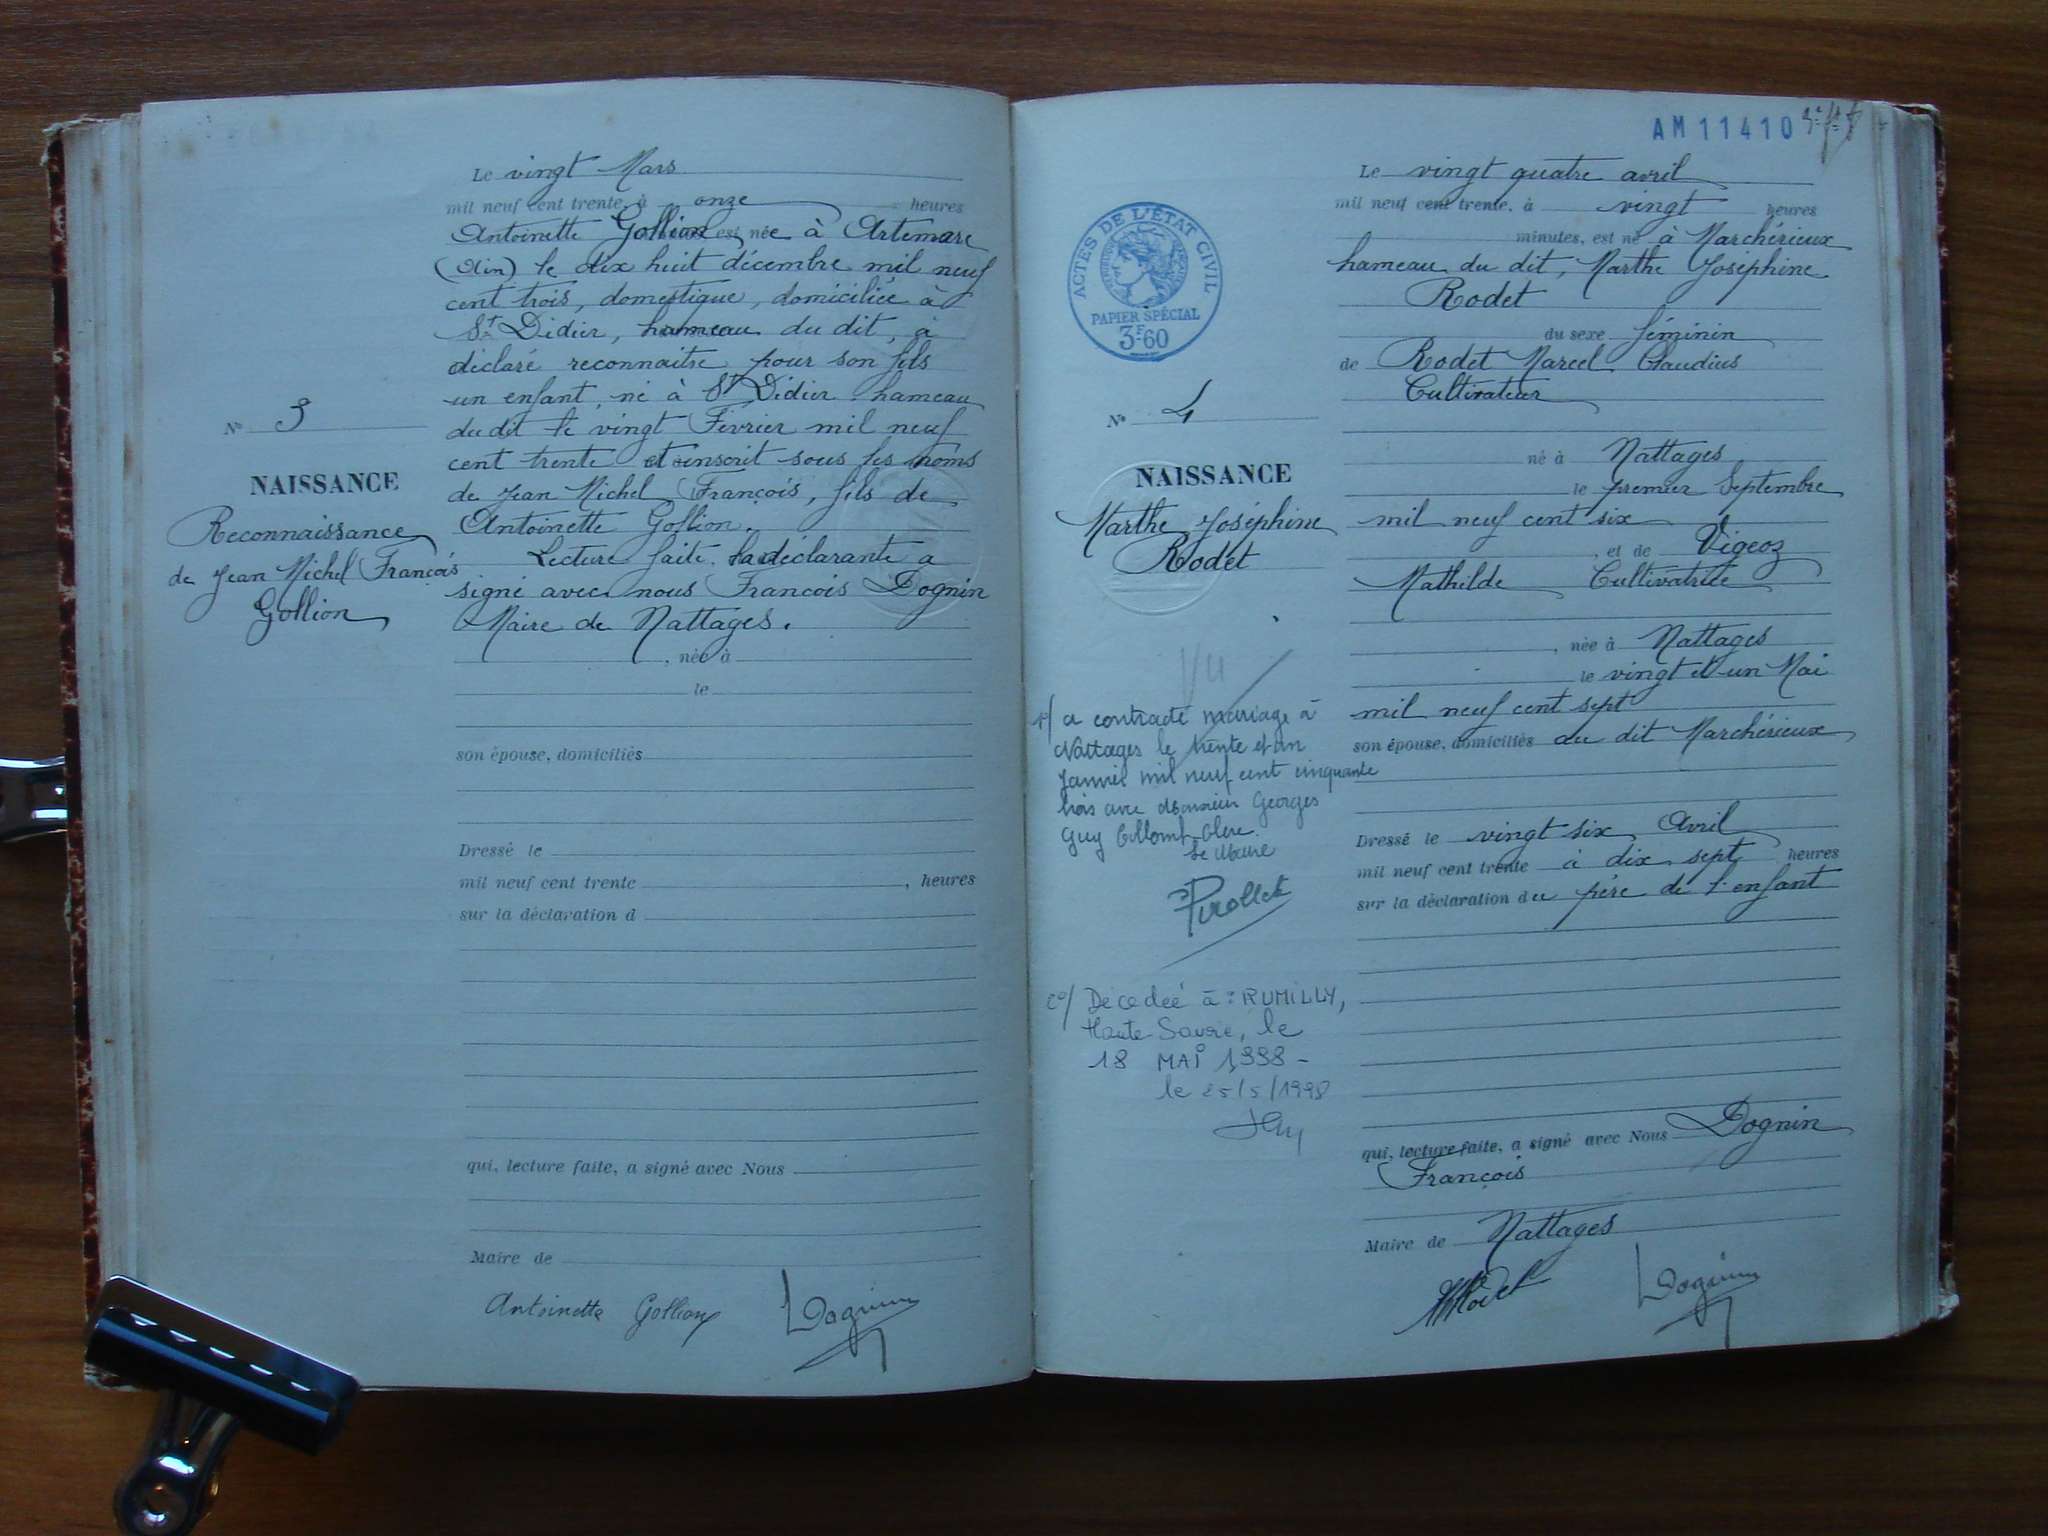 Le vingt Mars
mil neuf cent trente, à onze heures
Antoinette Gollion est née à Artemare
(Ain) le dix huit décembre mil neuf
cent trois, domestique, domiciliée à
St Didier, hameau du dit, a
déclaré reconnaitre pour son fils
un enfant, né à St Didier hameau
du dit le vingt Février mil neuf
cent trente et inscrit sous les noms
de Jean Michel François, fils de
Antoinette Gollion.
Lecture faite la déclarante a
signé avec nous François Dognin
Maire de Nattages.
, née à
le
son épouse, domiciliés
Dressé le
mil neuf cent trente , heures
sur la déclaration d
qui, lecture faite, a signé avec Nous
Maire de
Antoinette Gollion Dognin
No 3
NAISSANCE
Reconnaissance
de Jean Michel François
Gollion
AM 11410
ACTES DE L'ÉTAT CIVIL
PAPIER SPÉCIAL
3F60
No 4
NAISSANCE
Marthe Joséphine
Rodet
Vu
1°/ a contracté mariage à
Nattages le trente et un
Janvier mil neuf cent cinquante
trois avec Monsieur Georges
Guy
Le Maire
Pirollet
2°/ Décedée à : RUMILLY,
Haute Savoie, le
18 MAI 1998 -
le 25/5/1998
Le vingt quatre avril
mil neuf cent trente, à vingt heures
minutes, est né à Marchérieux
hameau du dit, Marthe Joséphine
Rodet
du sexe féminin
de Rodet Marcel Claudius
Cultivateur
né à Nattages
le premier Septembre
mil neuf cent six
, et de Vigeoz
Mathilde Cultivatrice
, née à Nattages
le vingt et un Mai
mil neuf cent sept
son épouse, domiciliés au dit Marchérieux
Dressé le vingt six Avril
mil neuf cent trente à dix sept heures
sur la déclaration du père de l'enfant
qui, lecture faite, a signé avec Nous Dognin
François
Maire de Nattages
Rodet Dognin